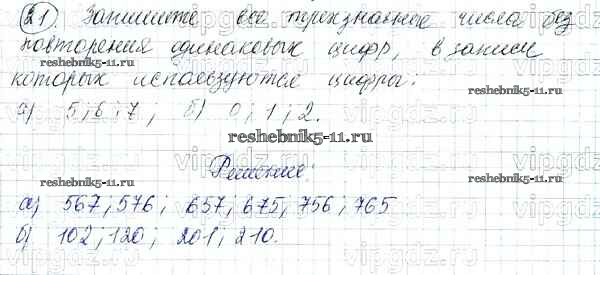 21) Запишите все трехзначные числа без
повторения одинаковых цифр, в записи
которых используются цифры:
а) 5; 6; 7; б) 0; 1; 2.
Решение:
а) 567; 576; 657; 675; 756; 765
б) 102; 120; 201; 210.
reshebnik5-11.ru
reshebnik5-11.ru
reshebnik5-11.ru
reshebnik5-11.ru
reshebnik5-11.ru
vipgdz.ru